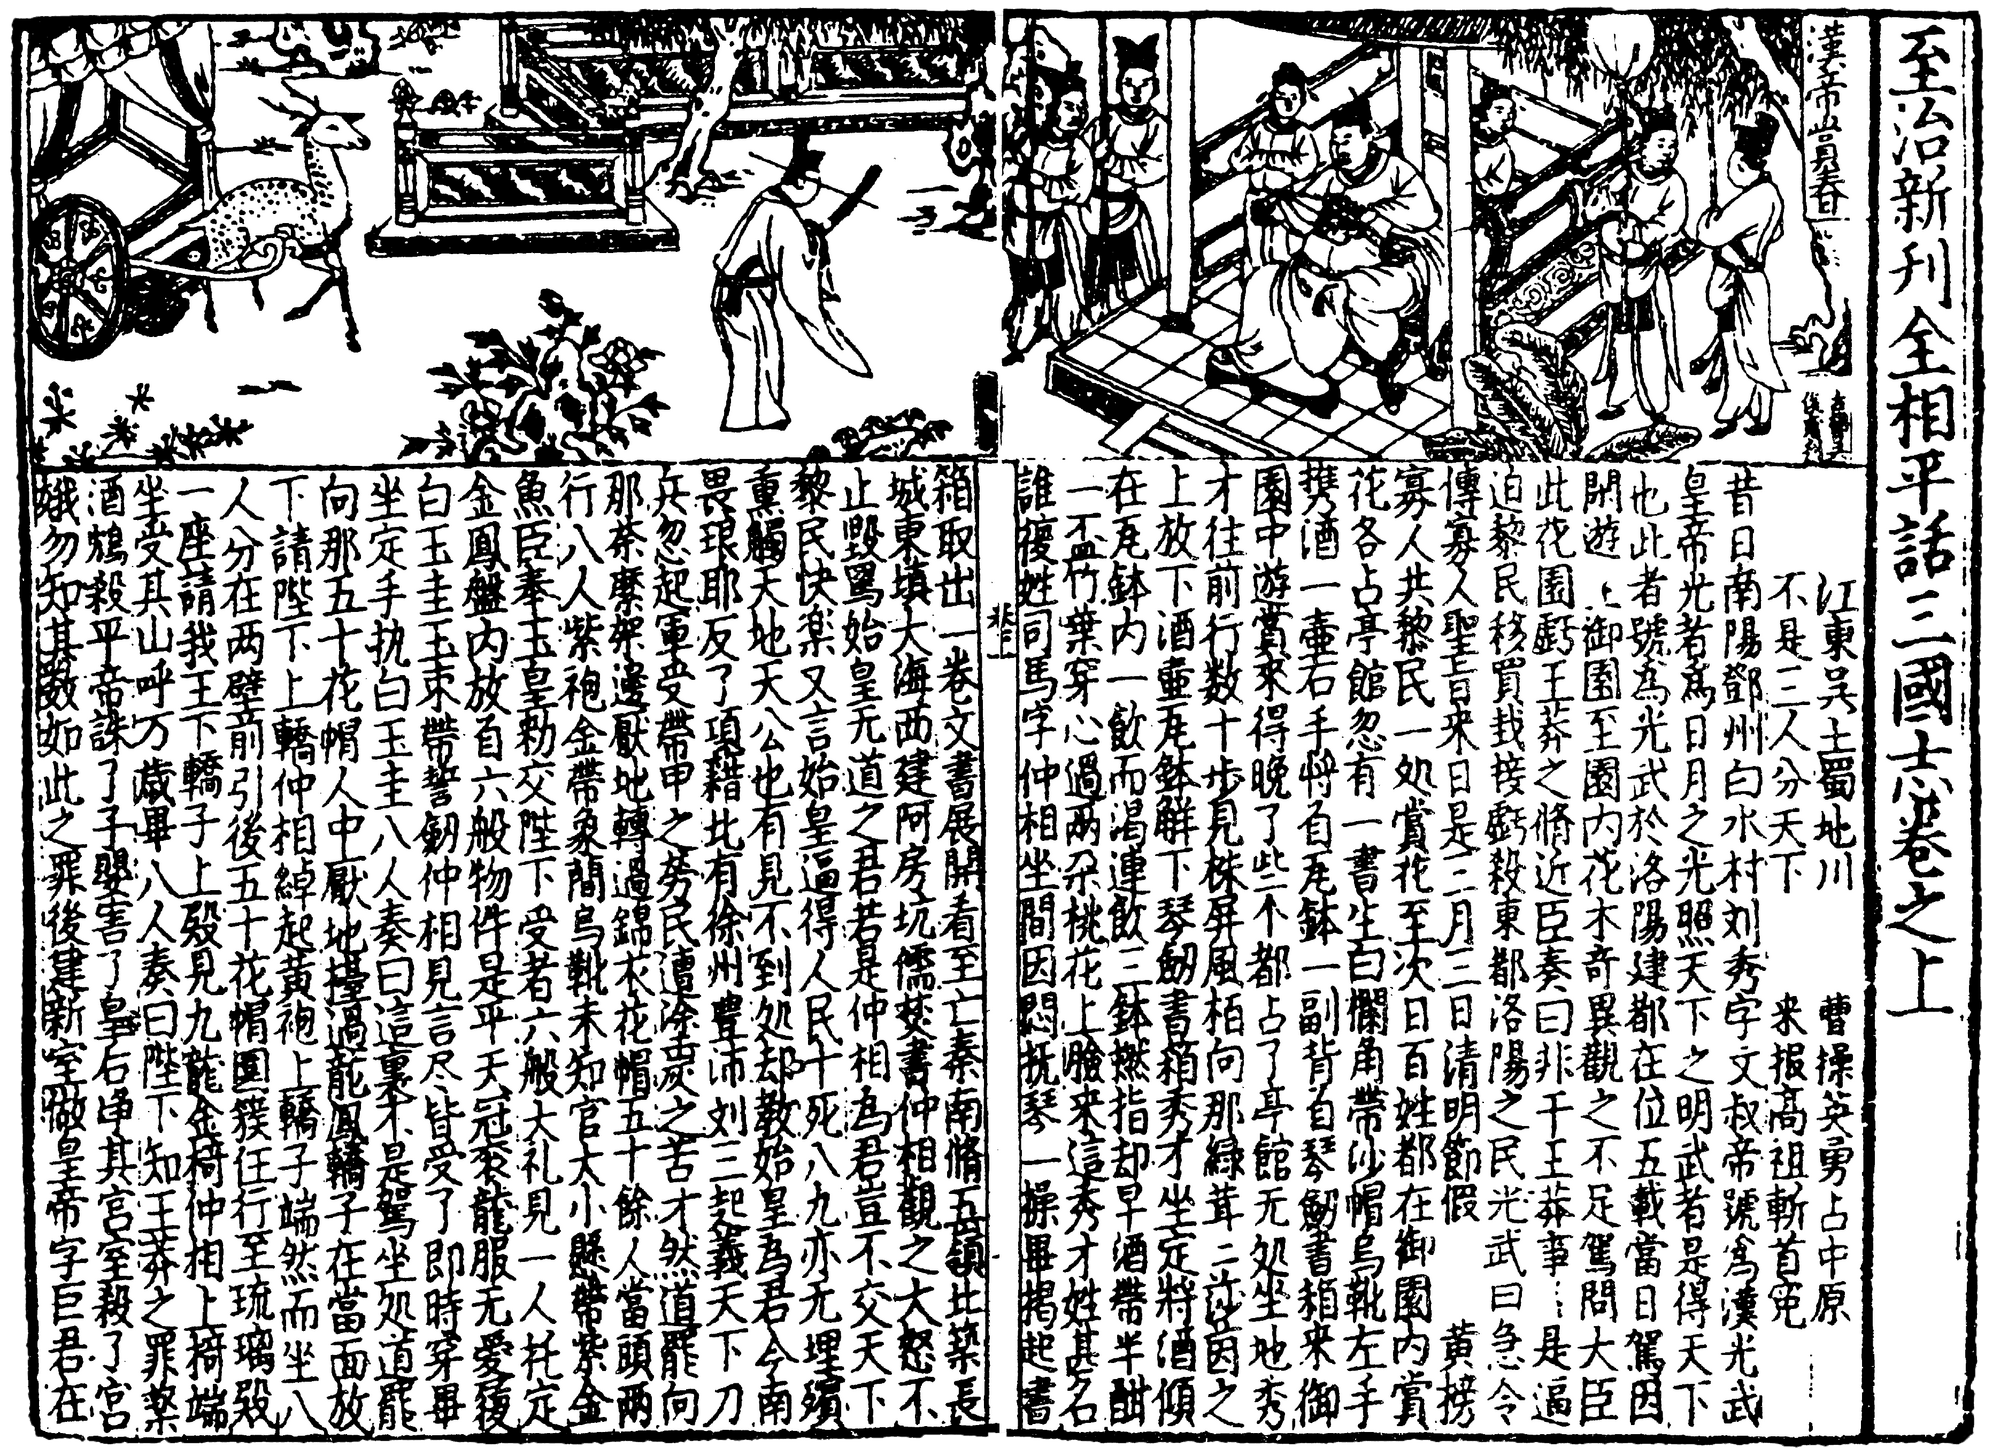 至治新刊全相平話三國志卷之上
漢帝賞春
江東吳土蜀地川　曹操英勇占中原
不是三人分天下　来报高祖斬首寃
昔日南陽鄧州白水村刘秀字文叔帝號為漢光武
皇帝光者為日月之光照天下之明武者是得天下
也此者號為光武於洛陽建都在位五載當日駕因
閑遊上御園至園内花木奇異觀之不足駕問大臣
此花園虧王莽之脩近臣奏曰非干王莽事是逼
迫黎民移買栽接虧殺東都洛陽之民光武曰急令
傳寡人聖旨来日是三月三日清明節假　黄榜
寡人共黎民一処賞花至次日百姓都在御園内賞
花各占亭館忽有一書生白欄角帶沙帽烏靴左手
携酒一壺右手將自瓦鉢一副背自琴劍書箱来御
園中遊賞来得晚了些个都占了亭館无処坐地秀
才往前行数十步見株屏風柏向那緑茸二莎茵之
上放下酒壺瓦鉢觧下琴劍書箱秀才坐定將酒傾
在瓦鉢内一飲而渴連飲三鉢撚指却早酒帶半酣
一盃竹葉穿心過两朶桃花上臉来這秀才姓甚名
誰復姓司馬字仲相坐間因悶抚琴一操畢揭起書
箱取出一卷文書展開看至亡秦南脩五嶺北築長
城東填大海西建阿房坑儒焚書仲相觀之大怒不
止毀罵始皇无道之君若是仲相為君豈不交天下
黎民快楽又言始皇逼得人民十死八九亦无埋殯
熏觸天地天公也有見不到処却教始皇為君今南
畏琅耶反了項籍北有徐州豊沛刘三起義天下刀
兵忽起軍受帶甲之勞民遭塗炭之苦才然道罷向
那荼縻架邊厭地轉過錦衣花帽五十餘人當頭两
行八人紫袍金帶象簡烏靴未知官大小懸帶紫金
魚臣奉玉皇勅交陛下受者六般大礼見一人托定
金鳳盤内放自六般物件是平天冠衮龍服无憂履
白玉圭玉束帶誓劍仲相見言尽皆受了即時穿畢
坐定手执白玉圭八人奏曰這裏不是駕坐処道罷
向那五十花帽人中厭地擡過龍鳳轎子在當面放
下請陛下上轎仲相綽起黄袍上轎子端然而坐八
人分在两壁前引後五十花帽圍簇住行至琉璃殿
一座請我王下轎子上殿見九龍金椅仲相上椅端
坐受其山呼万歲畢八人奏曰陛下知王莽之罪藥
酒鴆殺平帝誅了子嬰害了皇后净其宮室殺了宮
娥勿知其数如此之罪後建新室做皇帝字巨君在